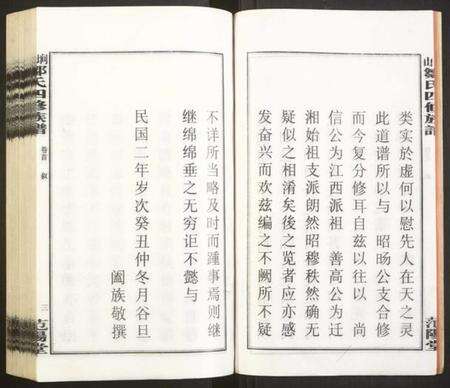 鄒氏四修族譜
范陽堂
类实於虚何以慰先人在天之灵
此道谱所以与 昭旸公支合修
而今复分修耳自兹以往以 尚
信公为江西派祖 善高公为迁
湘始祖支派朗然昭穆秩然确无
疑似之相淆矣後之览者应亦感
发奋兴而欢兹编之不阙所不疑
不详所当略及时而踵事焉则继
继绵绵垂之无穷讵不懿与
民国二年岁次癸丑仲冬月谷旦
阖族敬撰
鄒氏四修族譜
卷首 叙
三
范陽堂